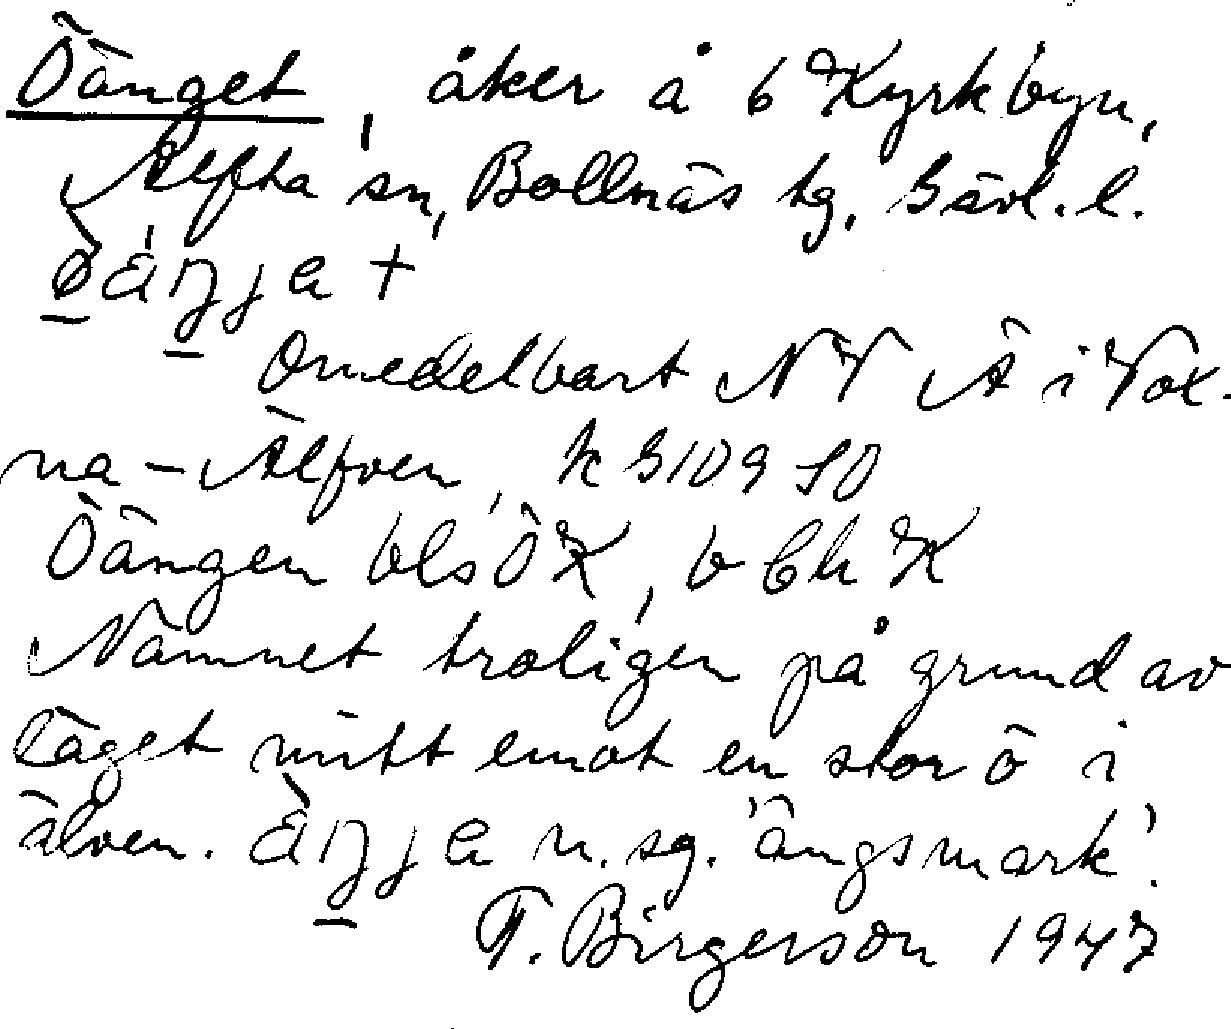 Öänget, åker å 6 Kyrkbyn,
Alfta sn, Bollnäs tg, Gävl. l.
ø̱̀äŋ̱ja +
Omedelbart NV Å i Vox-
na-Älfven, k 5109 SO
Öängen bls ÖK, b Ch K
Namnet troligen på grund av
läget mitt emot en stor ö i
älven. Äŋ̱ja n. sg. 'ängsmark'.
F. Birgerson 1947